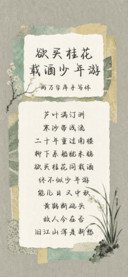 欲买桂花
载酒少年游
芦叶满汀洲
寒沙带浅流
二十年重过南楼
柳下系船犹未稳
欲买桂花同载酒
终不似少年游
能几日又中秋
黄鹤断矶头
故人今在否
旧江山浑是新愁